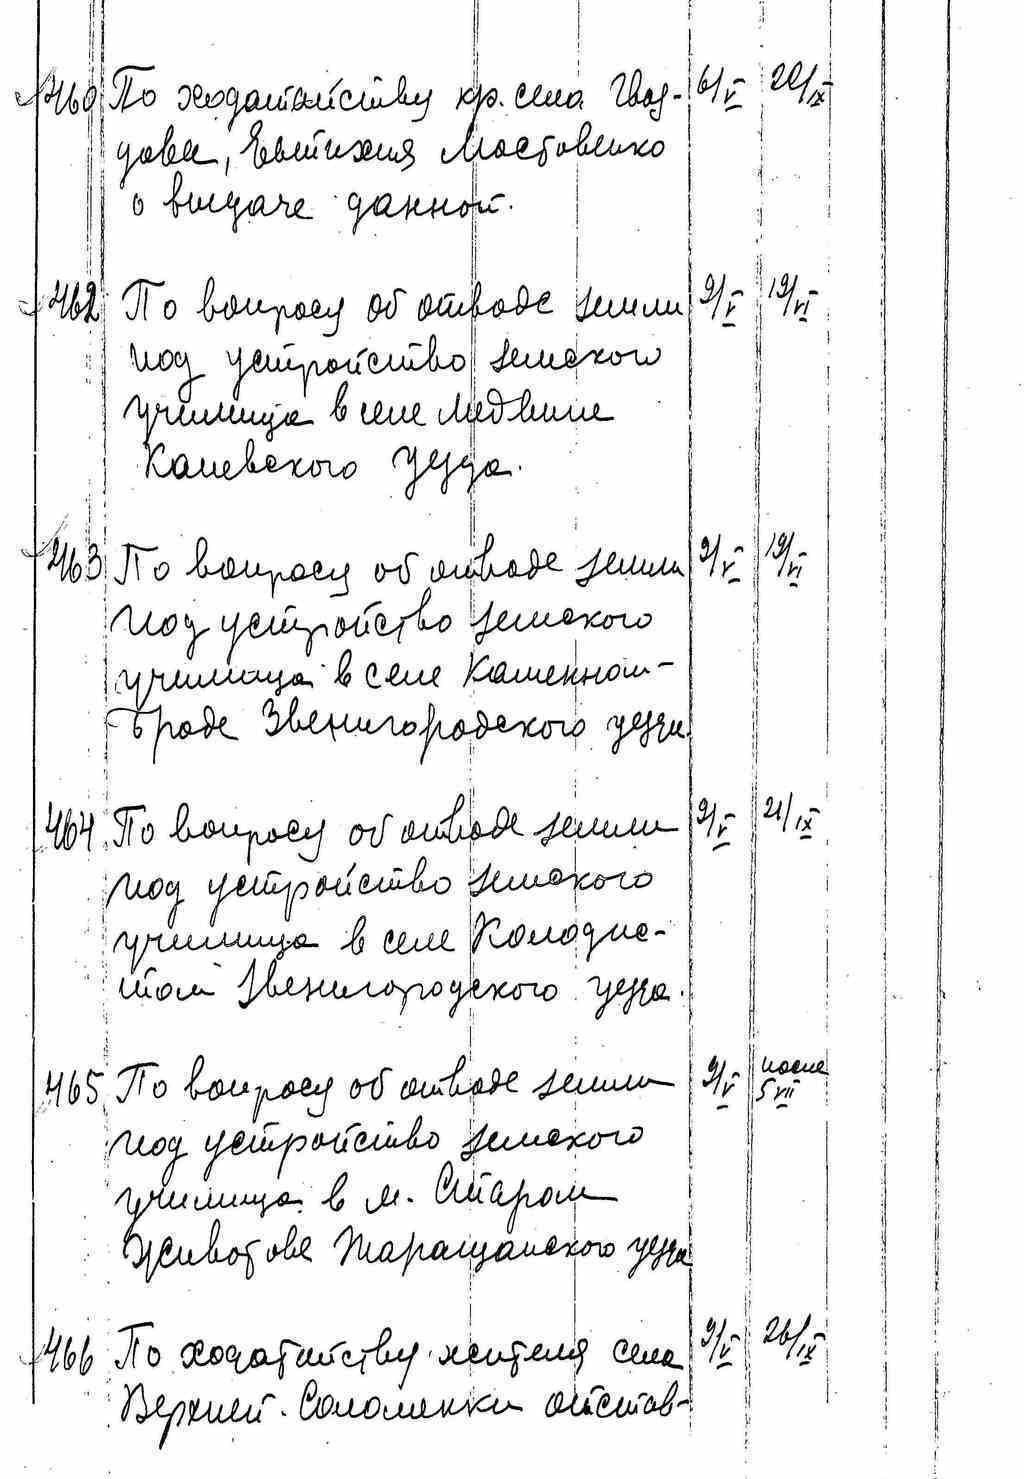 460 По ходатайству кр. села Гвоз- 6/V 20/IX
дова, Евтихия Мостовенко
о выдаче данной.
462 По вопросу об отводе земли 9/V 19/VI
под устройство земского
училища в селе Медвине
Каневского уезда.
463 По вопросу об отводе земли 9/V 19/VI
под устройство земского
училища в селе Каменном-
Броде Звенигородского уезда
464 По вопросу об отводе земли 9/V 21/IX
под устройство земского
училища в селе Колодис-
том Звенигородского уезда.
465 По вопросу об отводе земли 9/V после 5 VII
под устройство земского
училища в м. Старом
Животове Таращанского уезда
466 По ходатайству жителя села 9/V 26/IX
Верхней Соломенки отстав-